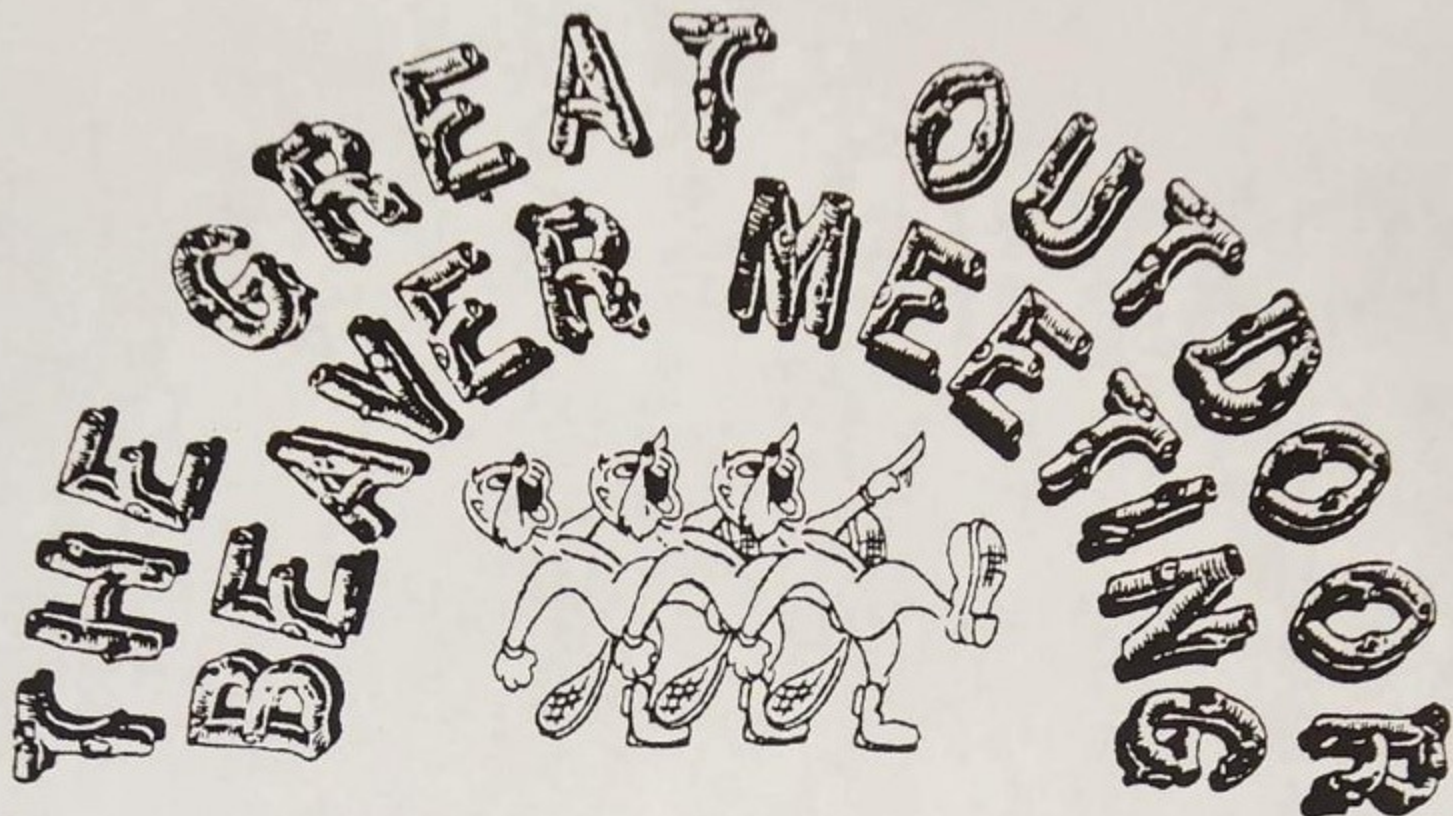 THE GREAT OUTDOOR
BEAVER MEETING